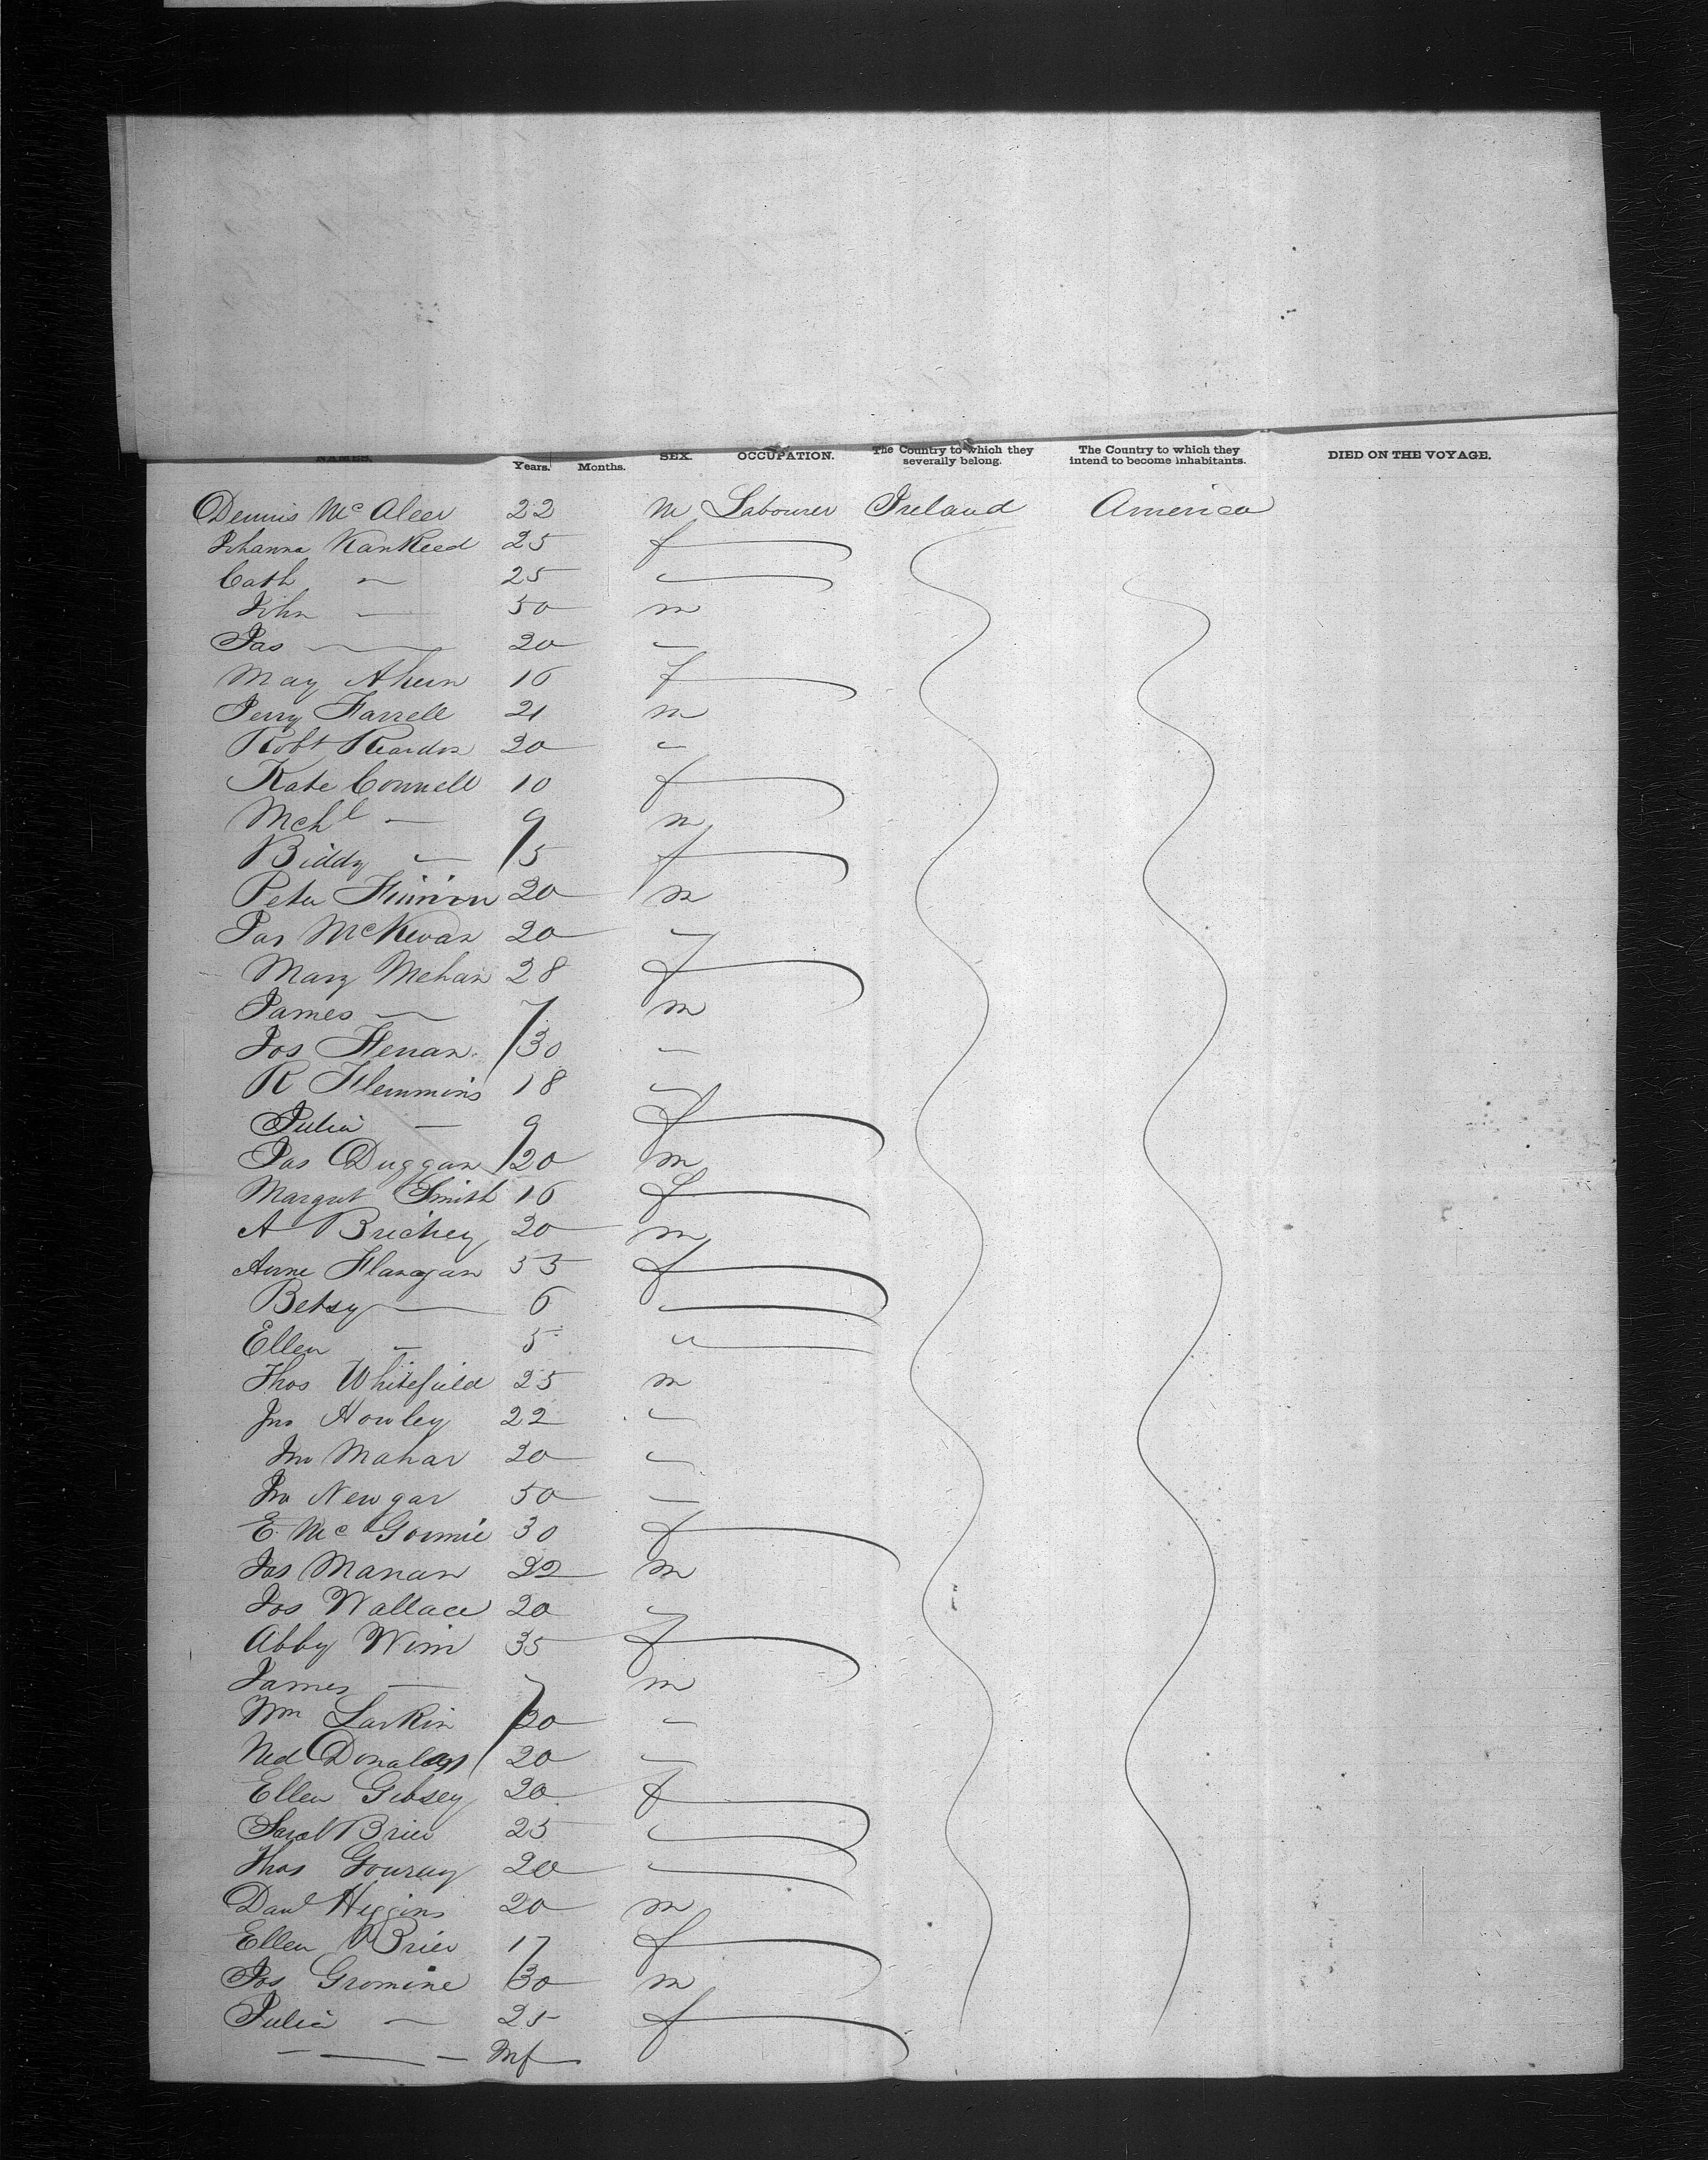 NAMES. Years. Months. SEX. OCCUPATION. The Country to which they severally belong. The Country to which they intend to become inhabitants. DIED ON THE VOYAGE.
Dennis Mc Aleer 22 m Labourer Ireland America
Johanna KanKeed 25 f
Cath — 25
John — 50 m
Jas — 20
May Ahern 16 f
Jerry Farrell 21 m
Robt Reardon 20
Kate Connell 10 f
Mchl — 9 m
Biddy — 5 f
Peter 20 m
Jas McKevan 20
Mary Mehan 28 f
James — 7 m
Jos Henan 30 —
R Flemmins 18
Julia — 9 f
Jas Duggan 20 m
Margret Smith 16 f
A Brickey 20 m
Anne Flanagan 35 f
Betsy — 6
Ellen — 5 "
Thos Whitefield 25 m
Jno Howley 22
Jno Mahar 20
Jno Newgar 50 —
E. Mc Gormie 30 f
Jas Manan 22 m
Jos Wallace 20
Abby Winn 35 f
James — 7 m
Wm Larkin 30 —
Ned 20 —
Ellen Gibsey 20 f
Brien 25
Thos 20
Danl Higgins 20 m
Ellen OBrien 17 f
Jos Gromine 30 m
Julia — 25 f
— — — Inf